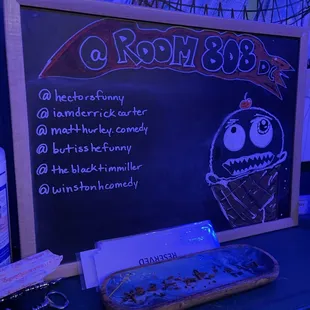 @ ROOM 808 DC
@ hectorsfunny
@ iamderrickcarter
@ matthurley.comedy
@ butisshefunny
@ theblacktimmiller
@ winstonhcomedy
RESERVED